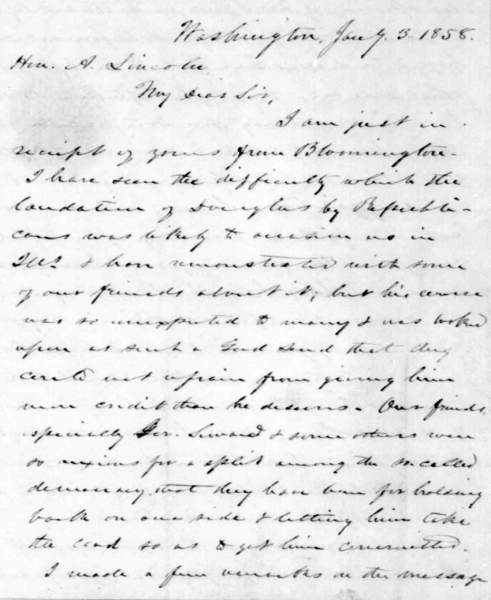 Washington, Jany. 3. 1858.
Hon. A. Lincoln.
My Dear Sir,
I am just in
receipt of yours from Bloomington.
I have seen the difficulty which the
laudation of Douglas by Republi-
cans was likely to occasion us in
Ills. & have remonstrated with some
of our friends about it; but his course
was so unexpected to many & was looked
upon as such a God send that they
could not refrain from giving him
more credit than he deserves. Our friends,
specially Gov. Seward & some others were
so anxious for a split among the so called
democracy that they have been for holding
back on our side & letting him take
the lead so as to get him committed.
I made a few remarks on the message